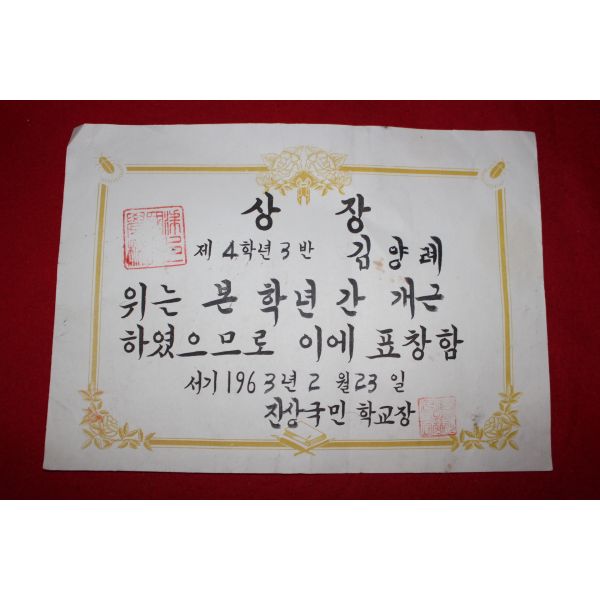 상 장
제 4학년 3 반 김양례
위는 본 학년간 개근
하였으므로 이에 표창함
서기 1963년 2 월 23 일
진상국민 학교장